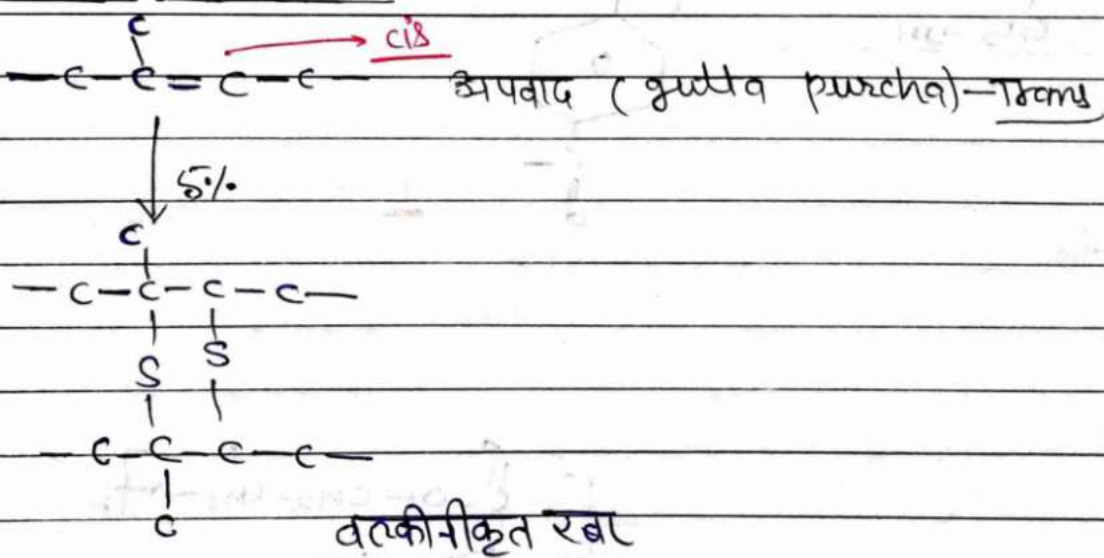 C cis
— C — C = C — C — अपवाद (gutta purcha) — Trans
5%
C
— C — C — C — C —
S S
— C — C — C — C —
C वल्कीनीकृत रबर